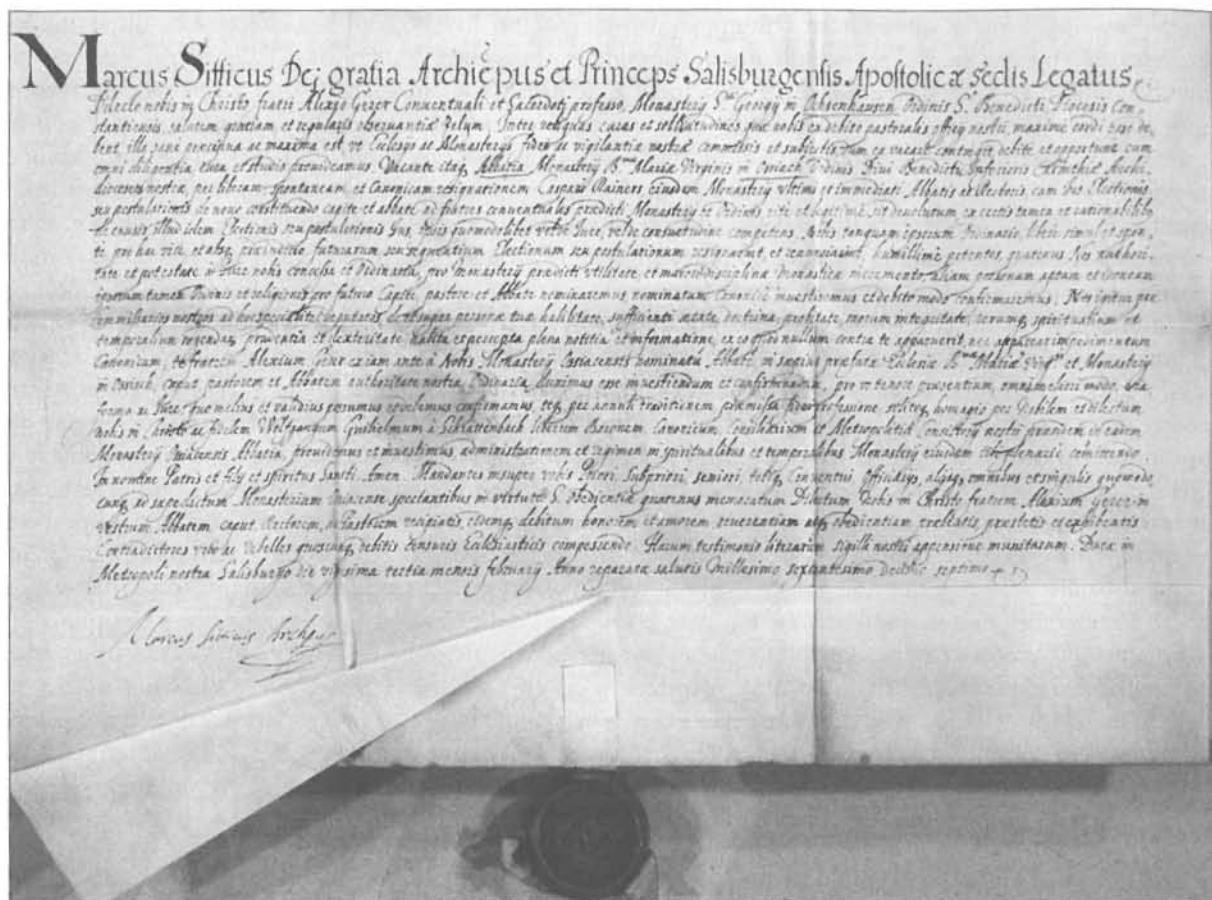 Marcus Sitticus Dej gratia Archiepus et Princeps Salisburgensis Apostolicæ sedis Legatus
Dilecto nobis in Christo fratri Alexio Geyer Conventuali et Sacerdotj professo, Monasterij S. Georgij in Ochsenhausen Ordinis S. Benedicti Diocesis Con-
stantiensis, salutem gratiam, et regularis observantiæ zelum. Inter reliquas curas et sollicitudines quæ nobis ex debito pastoralis officij nostri, maxime cordi esse de-
bent, illa sanè præcipua ac maxima est, vt Ecclesijs ac Monasterijs fidei ac vigilantiæ nostræ commissis et subiectis, cum ea vacare contingit, debite et opportune cum
omni diligentia cura et studio provideamus. Vacante itaq Abbatia Monasterij B. Mariæ Virginis in Ossiach Ordinis Divi Benedicti Inferioris Carinthiæ Archi-
diœcesis nostræ, per liberam spontaneam et Canonicam resignationem Caspari Rainers eiusdem Monasterij vltimi et immediati Abbatis ac Rectoris, cum Ius Electionis,
seu postulationis de novo constituendo capite et abbate ad fratres conventuales prædicti Monasterij et Ordinis ritè et legitimè sit devolutum ex certis tamen et rationabilib
de causis illud idem Electionis seu postulationis Ius, ipsis quomodolibet vel de Iure, vel de consuetudine competens, Nobis tanquam ipsorum Ordinario, liberè simul et spon-
te pro hac vice, et absq præiudicio futurarum seu sequentium Electionum seu postulationum resignarint, et renunciarint, humillimè petentes, quatenus Nos authori-
tate et potestate à Iure nobis concessa et Ordinaria, pro Monasterij prædicti vtilitate, et maiori disciplinæ Monasticæ incremento, aliam personam aptam et idoneam
ipsorum tamen Ordinis et religionis pro futuro Capite, pastore et Abbate nominaremus, nominatum Canonicè investiremus et debito modo confirmaremus. Nos igitur per
commissarios nostros ad hoc specialiter deputatos, de et super personæ tuæ habilitate, sufficienti ætate, doctrina, probitate, morum integritate, rerumq spiritualium et
temporalium regendar, prudentia et dexteritate, habita et percepta plena notitia et informatione, ex eo quod nullum contra te apparuerit, nec appareat impedimentum
Canonicum, te fratrem Alexium Geyer etiam ante à Nobis Monasterij Ossiacensis nominatū Abbatē, in sæpius præfatæ Ecclesiæ B. Mariæ Virg. et Monasterij
in Ossiach, Caput, pastorem et Abbatem authoritate nostra Ordinaria, duximus esse investiendum et confirmandum, pro vt tenore præsentium, omni meliori modo, via
forma ac Iure, quo melius et validius possumus ac volumus confirmamus, teq per annuli traditionem præmissa fidei professione, solitoq homagio per Nobilem et dilectum
nobis in Christo ac fidelem Wolfgangum Guilhelmum à Schrattenbach liberum Baronem, Canonicum, Consiliarium et Metropolitici Consistorij nostri præsidem in eadem
Monasterij Ossiacensis Abbatia, providemus et investimus, administrationem et regimen in spiritualibus et temporalibus Monasterij eiusdem tibi plenariè committendo
In nomine Patris et filij et spiritus Sancti. Amen. Mandantes insuper vobis Priori, Subpriori, seniori, totiq Conventui, Officialibus, alijsq, omnibus et singulis quomodo-
cunq ad sæpedictum Monasterium Ossiacense spectantibus in virtute S. obedientiæ quatenus memoratum Dilectum Nobis in Christo fratrem, Alexium Geyer in
vestrum Abbatem caput, Rectorem, ac Pastorem recipiatis, eidemq debitum honorem et amorem reverentiam atq obedientiam præbeatis, præstetis et exhibeatis
Contradictores verò ac rebelles quoscunq debitis Censuris Ecclesiasticis compescendo. Harum testimonio literarum sigilli nostri appensione munitarum. Datæ in
Metropoli nostra Salisburgo die vigesima tertia mensis februarij Anno reparatæ salutis Millesimo sexcentesimo decimo septimo
Marcus Sitticus Archepus